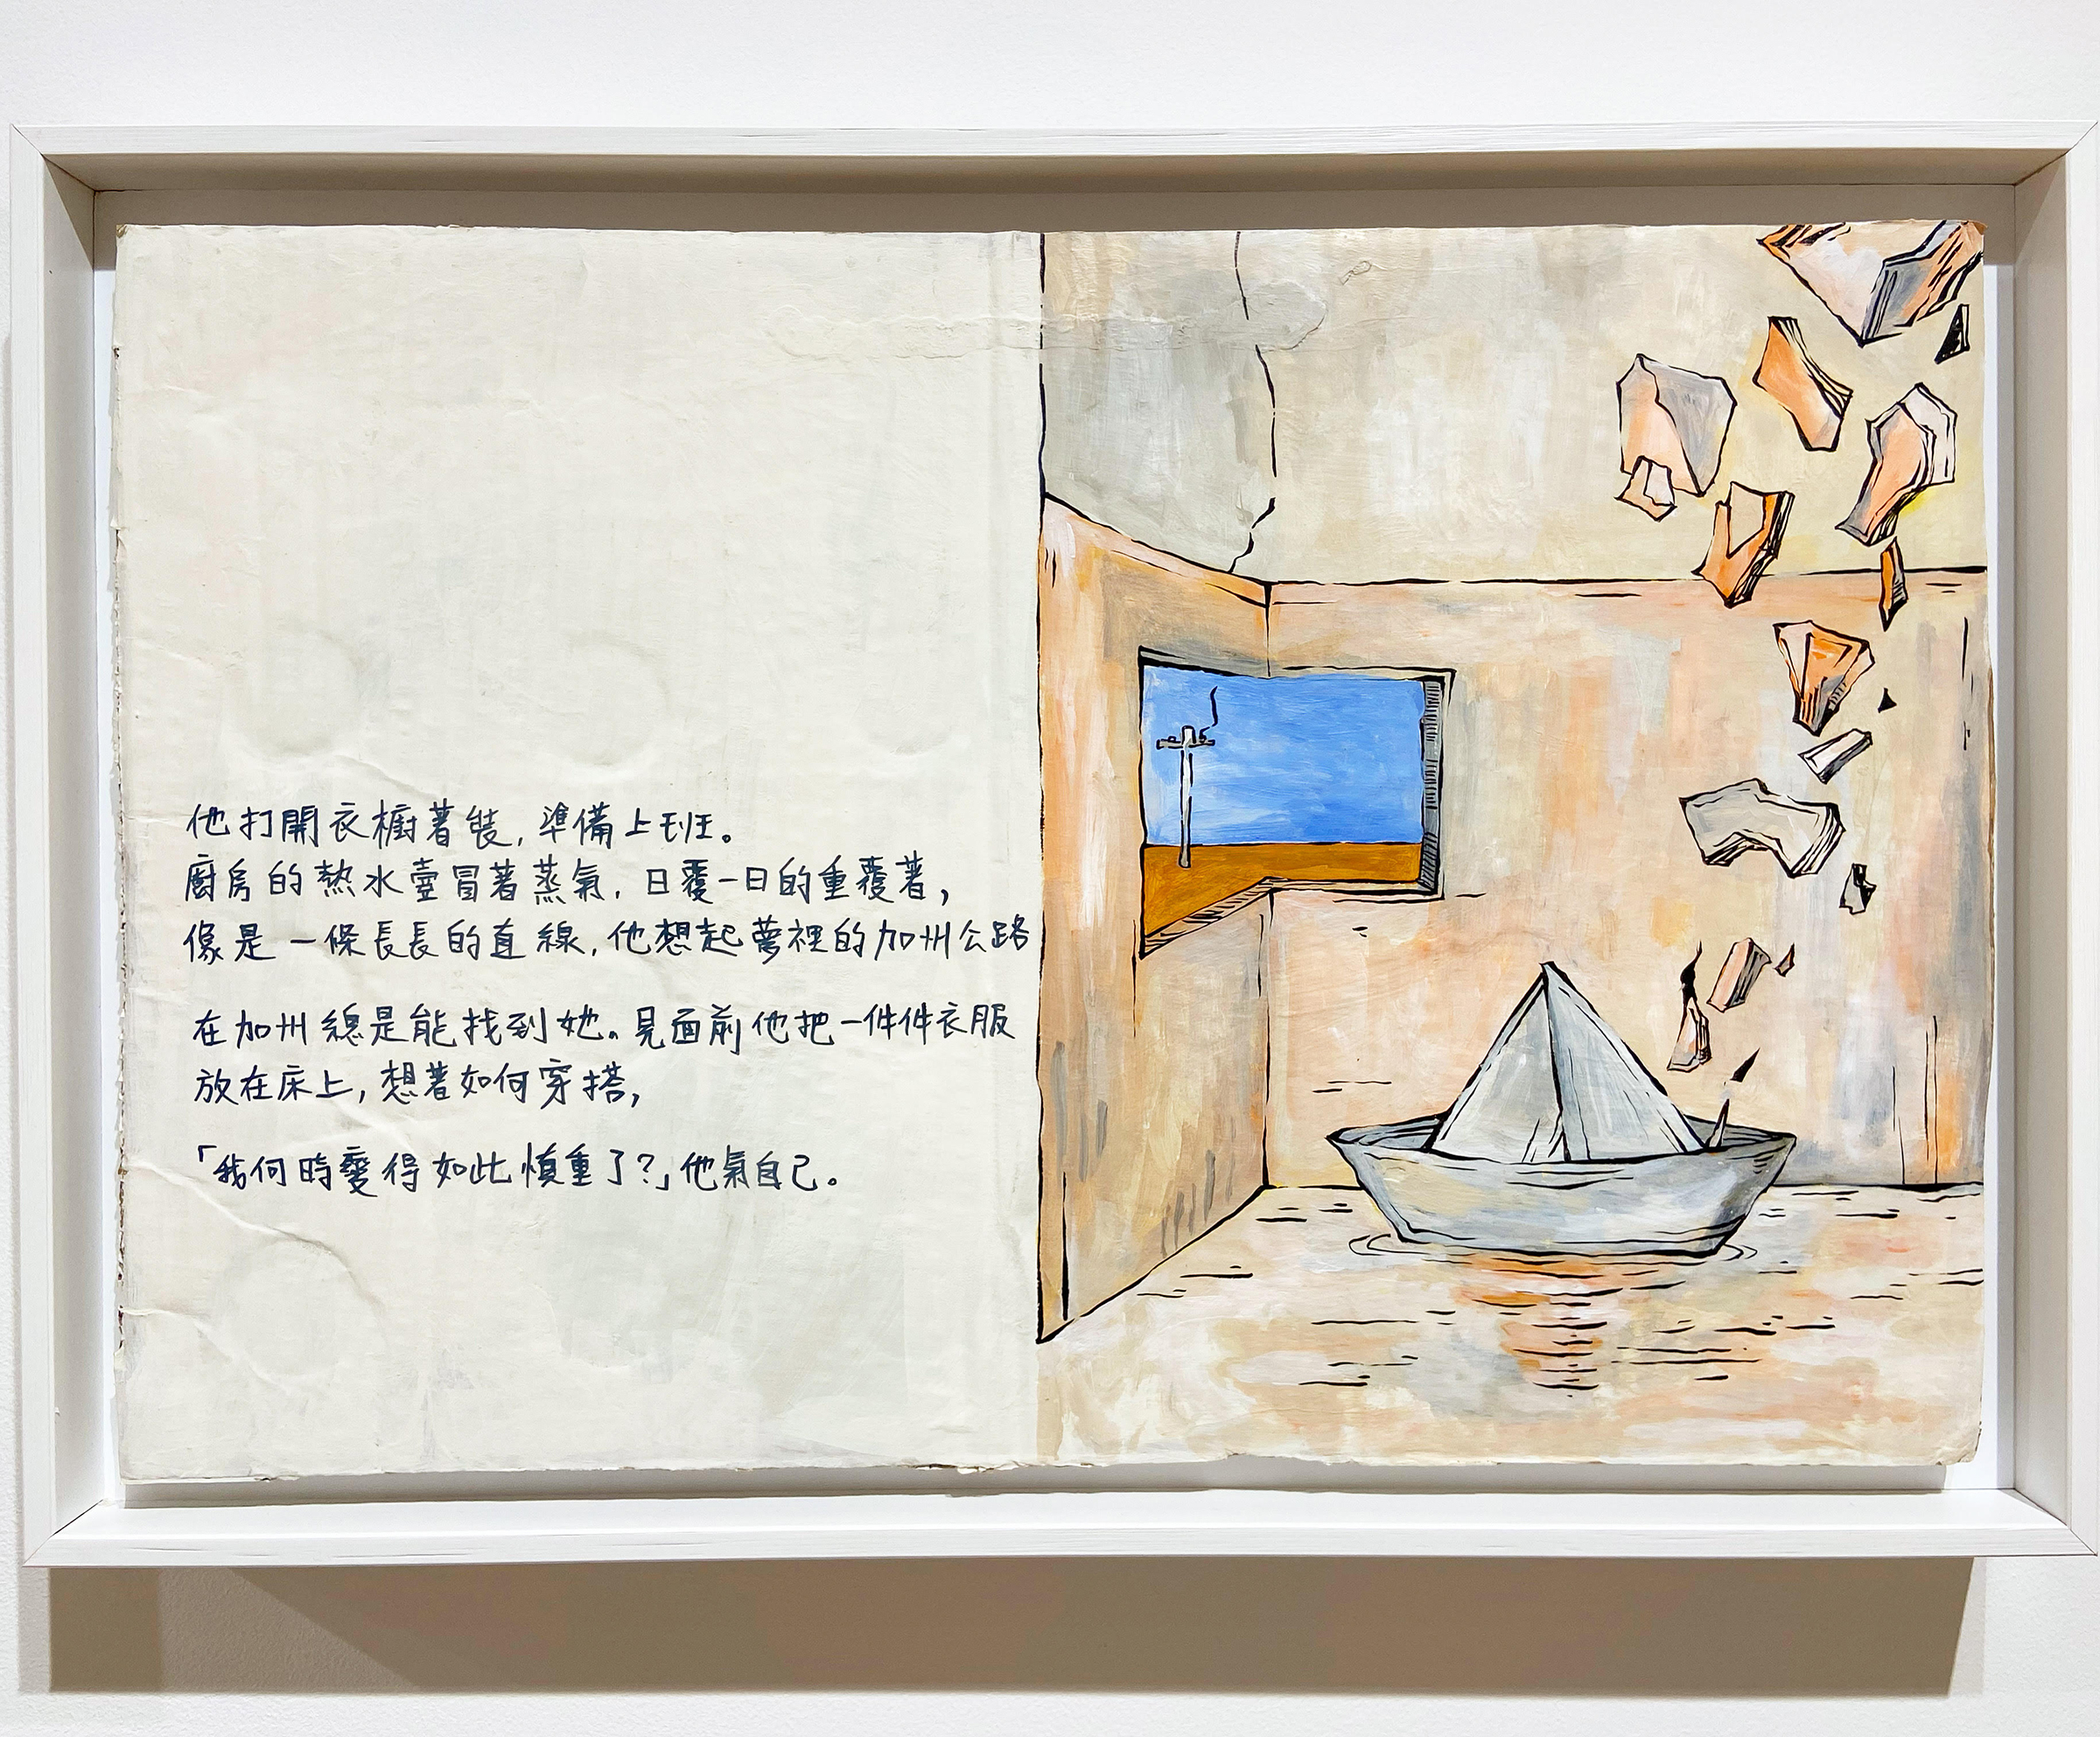 他打開衣櫥著裝,準備上班。
廚房的熱水壺冒著蒸氣,日覆一日的重覆著,
像是一條長長的直線,他想起夢裡的加州公路
在加州總是能找到她。見面前他把一件件衣服
放在床上,想著如何穿搭,
「我何時變得如此慎重了?」他氣自己。